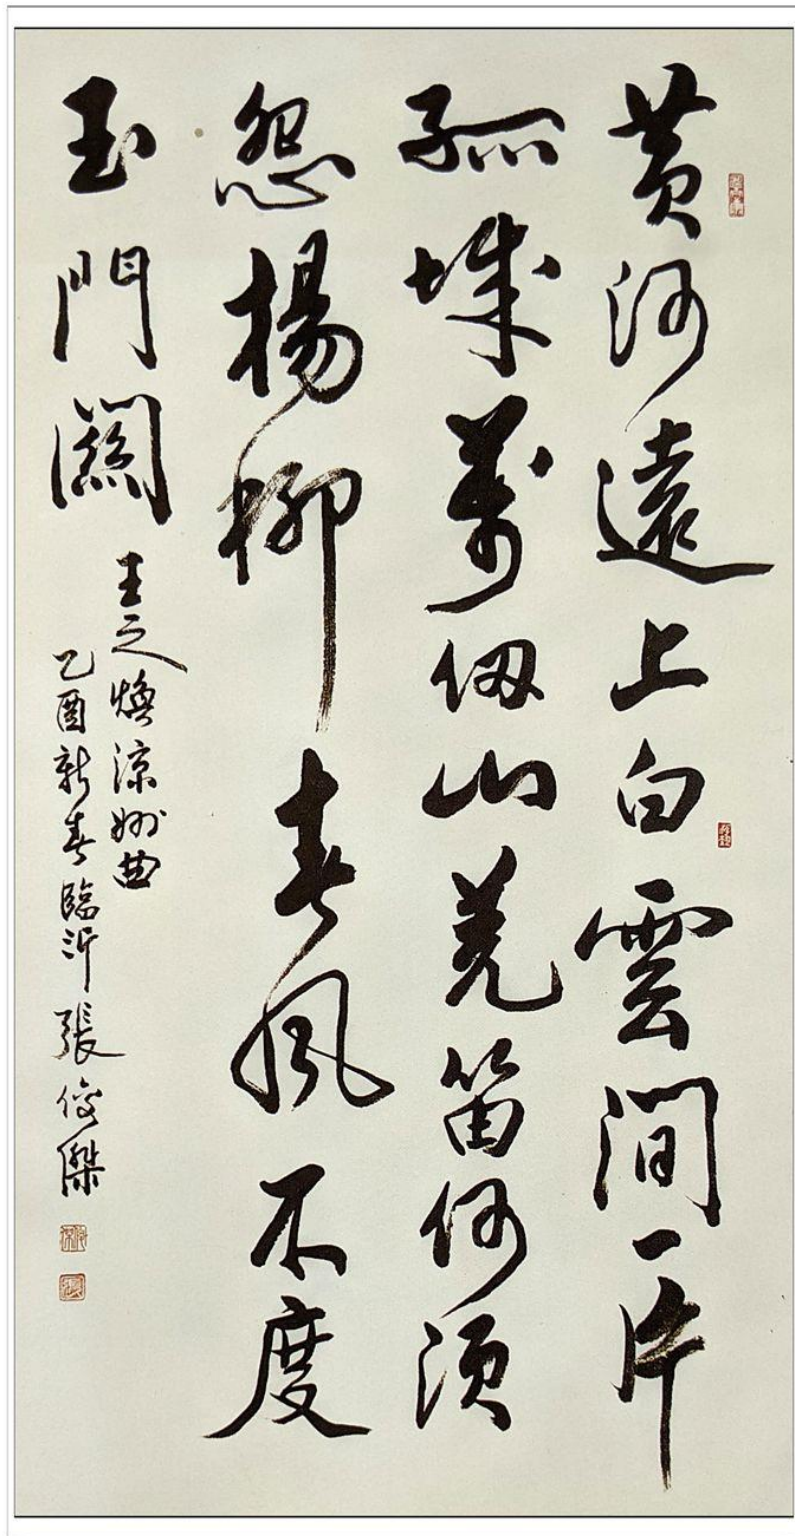 黄河遠上白雲間一片
孤城萬仞山羌笛何須
怨楊柳春風不度
玉門關
王之煥涼州曲
乙酉新春臨沂張俊傑